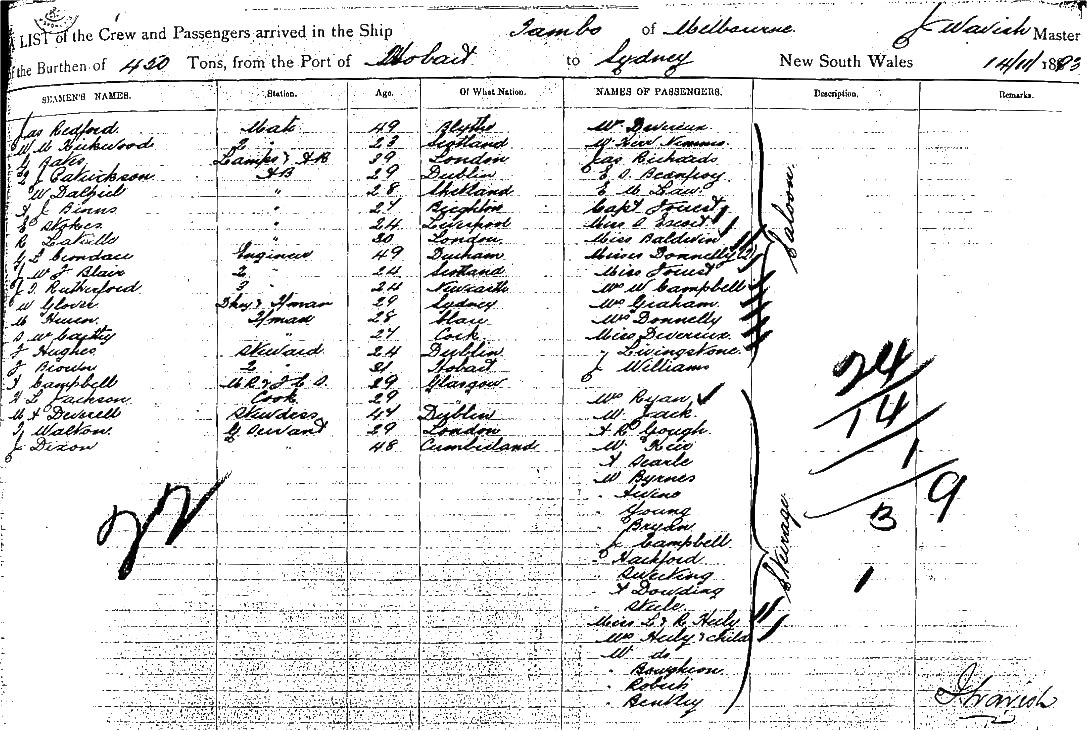 LIST of the Crew and Passengers arrived in the Ship Tambo of Melbourne. J Wavish Master
of the Burthen of 420 Tons, from the Port of Hobart to Sydney New South Wales 14/11/1883
SEAMEN'S NAMES. Station. Age. Of What Nation. NAMES OF PASSENGERS. Description. Remarks.
Jas Redford Mate 49 Blyth W. Devereux
W M Kirkwood 2 " 23 Scotland W. Kerr Nimmo
Bates Lamps & AB 29 London Jas Richards
J Patrickson AB 29 Dublin E. O. Beamfoy
W Dalziel " 28 Shetland E M Law
J Binns " 27 Brighton Capt Foust
E Stokes " 24 Liverpool Miss Escott
R " 30 London Miss Baldwin
Engineer 49 Durham Misses Donnelly (2)
J W J Blair 2 " 24 Scotland Miss Foust
J. Rutherford 3 " 24 Newcastle Mrs W Campbell
W Glover Dky & Fman 29 Sydney Mrs Graham
M Fman 28 Mrs Donnelly
" 27 Cork Miss Devereux
J Hughes Steward 24 Dublin " Livingstone
J Brown 2 " 21 Hobart J Williams
Saloon
Campbell 29 Glasgow
L Jackson Cook 29 Mrs Ryan
Deverell Stewdess 47 Dublin W. Jack
Walton G Servant 29 London A R Gough
J Dixon " 48 Cumberland W. Kerr
A Searle
W Byrnes
" Young
" Bryan
J Campbell
" Hackford
A Dowding
Steele
Miss L & R Hely
Mrs Hely & child
W do
" Boughton
" Roberts
" Bentley
Steerage
22
24
14
1
9
3
1
J Wavish